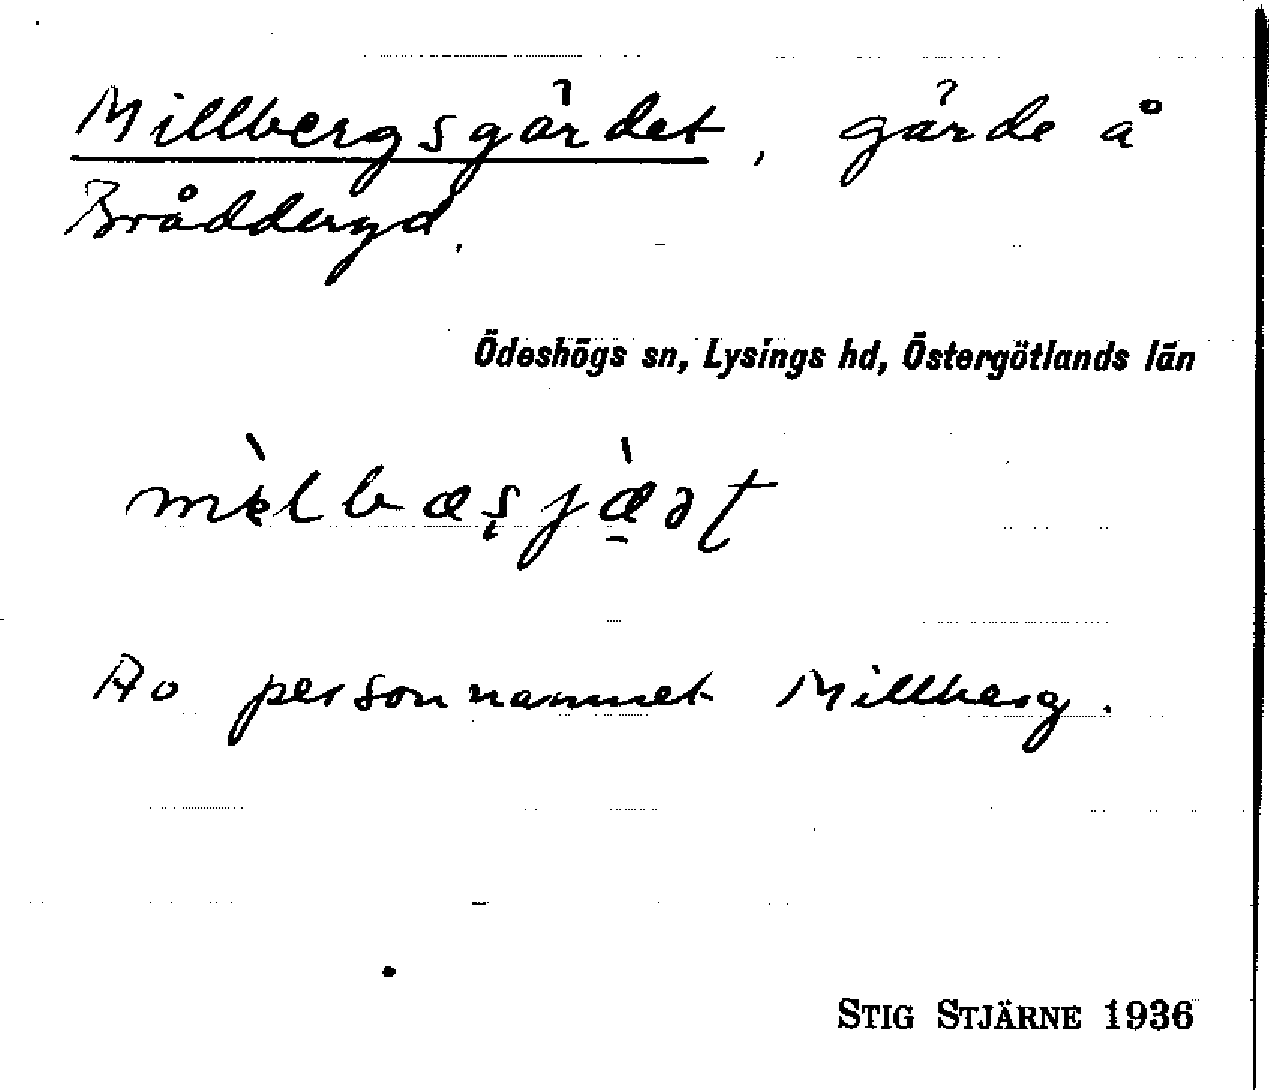 Millbergsgärdet, gärde å
Bråddaryd.
Ödeshögs sn, Lysings hd, Östergötlands län
Av personnamnet Millberg.
STIG STJÄRNE 1936